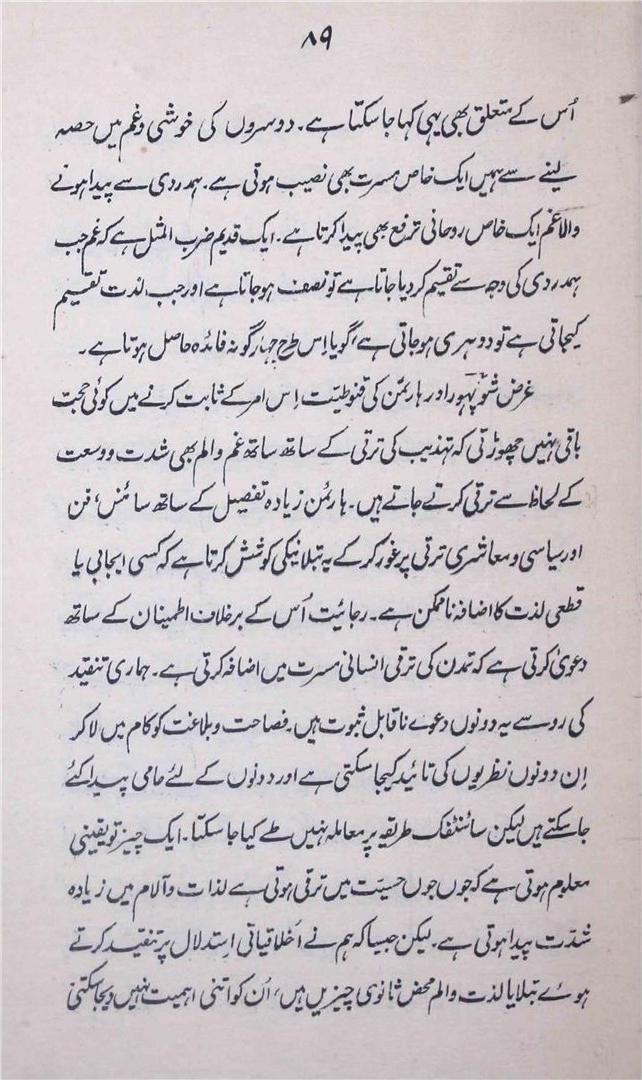 ۸۹
اُس کے متعلق بھی یہی کہا جا سکتا ہے۔ دوسروں کی خوشی و غم میں حصہ
لینے سے ہمیں ایک خاص مسرت بھی نصیب ہوتی ہے۔ ہمدردی سے پیدا ہونے
والا غم ایک خاص روحانی ترفع بھی پیدا کرتا ہے۔ ایک قدیم ضرب المثل ہے کہ غم جب
ہمدردی کی وجہ سے تقسیم کر دیا جاتا ہے تو نصف ہو جاتا ہے اور جب لذت تقسیم
کیجاتی ہے تو دوہری ہو جاتی ہے، گویا اِس طرح چہار گونہ فائدہ حاصل ہوتا ہے۔
غرض شوپنہور اور ہارٹمن کی قنوطیت اِس امر کے ثابت کرنے میں کوئی حجت
باقی نہیں چھوڑتی کہ تہذیب کی ترقی کے ساتھ ساتھ غم والم بھی شدت و وسعت
کے لحاظ سے ترقی کرتے جاتے ہیں۔ ہارٹمن زیادہ تفصیل کے ساتھ سائنس، فن
اور سیاسی و معاشری ترقی پر غور کر کے یہ بتلانیکی کوشش کرتا ہے کہ کسی ایجابی یا
قطعی لذت کا اضافہ ناممکن ہے۔ رجائیت اُس کے برخلاف اطمینان کے ساتھ
دعویٰ کرتی ہے کہ تمدن کی ترقی انسانی مسرت میں اضافہ کرتی ہے۔ ہماری تنقید
کی رو سے یہ دونوں دعوے ناقابل ثبوت ہیں۔ فصاحت و بلاغت کو کام میں لا کر
اِن دونوں نظریوں کی تائید کیجا سکتی ہے اور دونوں کے لئے حامی پیدا کئے
جا سکتے ہیں لیکن سائنٹفک طریقہ پر معاملہ نہیں طے کیا جا سکتا۔ ایک چیز تو یقینی
معلوم ہوتی ہے کہ جوں جوں حسیت میں ترقی ہوتی ہے لذات و آلام میں زیادہ
شدّت پیدا ہوتی ہے۔ لیکن جیسا کہ ہم نے اَخلاقیاتی اِستدلال پر تنقید کرتے
ہوئے بتلایا لذت و الم محض ثانوی چیزیں ہیں، اُن کو اتنی اہمیت نہیں دیجا سکتی